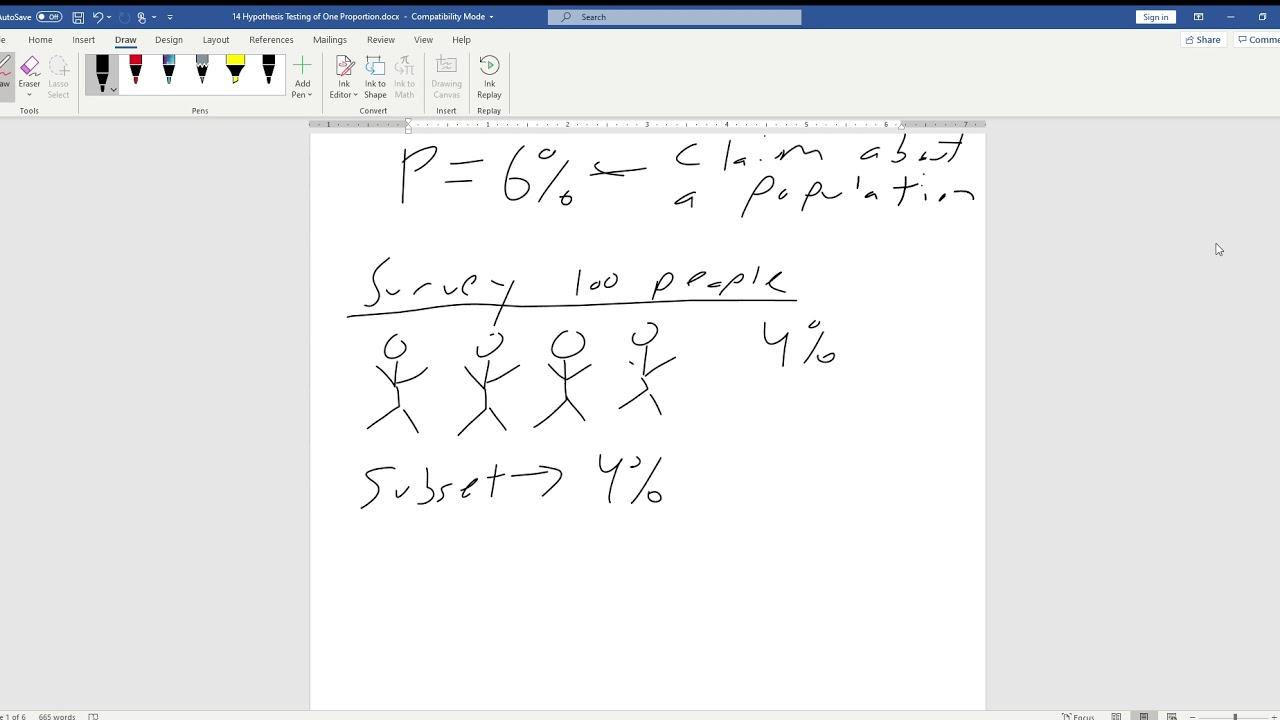 AutoSave Off 14 Hypothesis Testing of One Proportion.docx - Compatibility Mode Search Sign in
Home Insert Draw Design Layout References Mailings Review View Help Share Comme
Eraser Lasso Select Add Pen Ink Editor Ink to Shape Ink to Math Drawing Canvas Ink Replay
Tools Pens Convert Insert Replay
1 1 2 3 4 5 6 7
P = 6% ← Claim about
a population
Survey 100 people
4%
Subset → 4%
1 of 6 665 words Focus